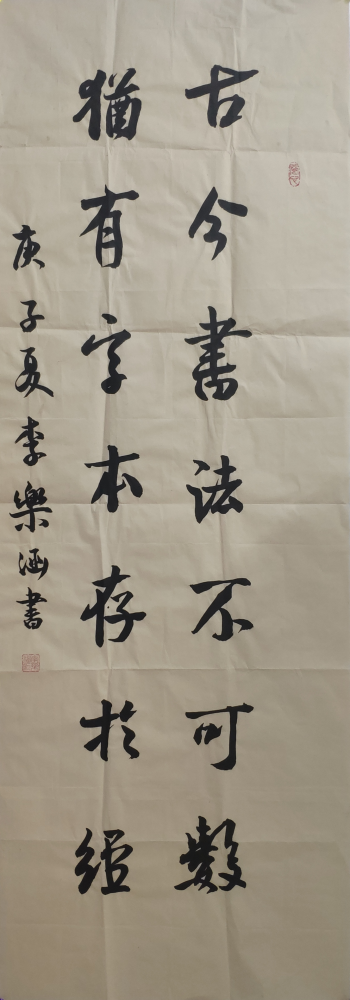 古今書法不可數
猶有字本存於經
庚子夏李樂涵書